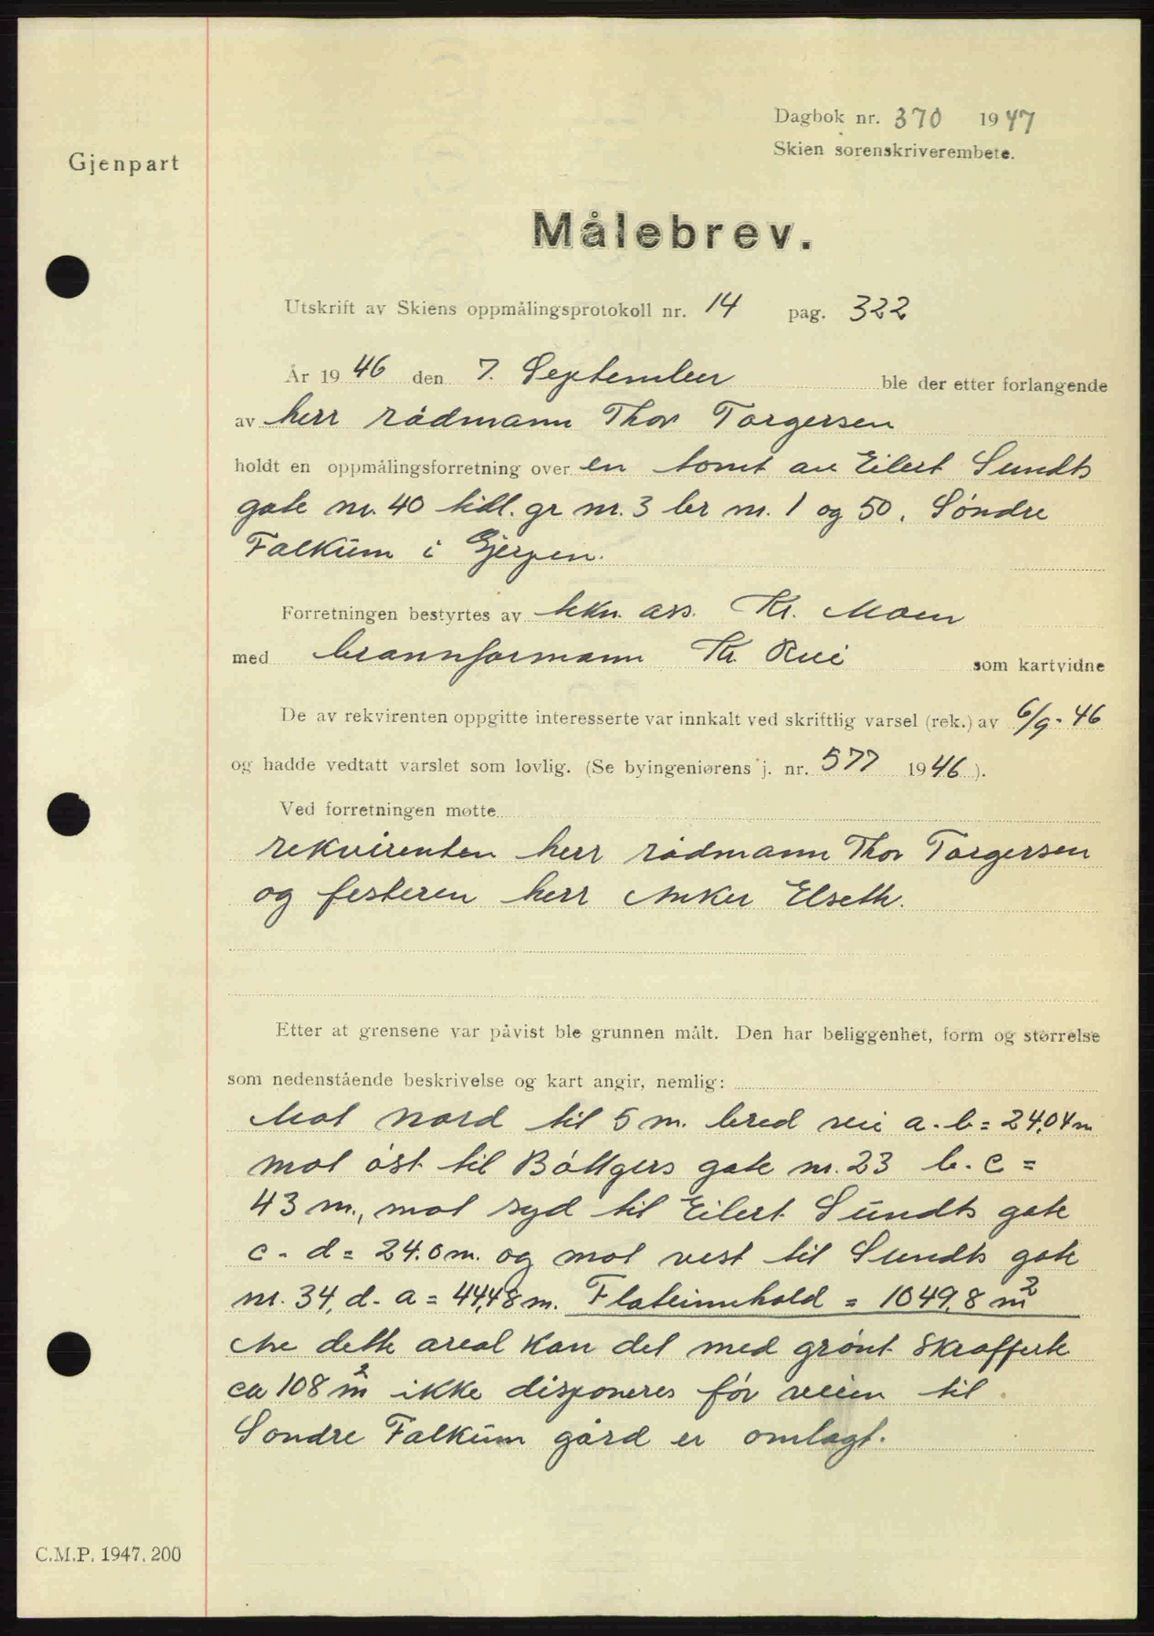 Dagbok nr. 370 1947
Skien sorenskriverembete.
Gjenpart
Målebrev.
Utskrift av Skiens oppmålingsprotokoll nr. 14 pag. 322
År 1946 den 7. September ble der etter forlangende
av herr rådmann Thor Torgersen
holdt en oppmålingsforretning over en tomt av Eilert Sundts
gate nr. 40 tidl. gr nr. 3 br nr. 1 og 50. Søndre
Falkum i Gjerpen.
Forretningen bestyrtes av tekn. ass. Kr. Moen
med brannformann Kr. Rui som kartvidne
De av rekvirenten oppgitte interesserte var innkalt ved skriftlig varsel (rek.) av 6/9-46
og hadde vedtatt varslet som lovlig. (Se byingeniørens j. nr. 577 1946).
Ved forretningen møtte
rekvirenten herr rådmann Thor Torgersen
og festeren herr Anker Elseth.
Etter at grensene var påvist ble grunnen målt. Den har beliggenhet, form og størrelse
som nedenstående beskrivelse og kart angir, nemlig:
Mot nord til 5 m. bred vei a-b = 24,04 m
mot øst til Bøttgers gate nr. 23 b-c =
43 m., mot syd til Eilert Sundts gate
c-d = 24.0 m. og mot vest til Sundts gate
nr. 34, d-a = 44,48 m. Flateinnhold = 1049,8 m²
Av dette areal kan det med grønt skrafferte
ca 108 m² ikke disponeres før veien til
Søndre Falkum gård er omlagt.
C.M.P. 1947. 200